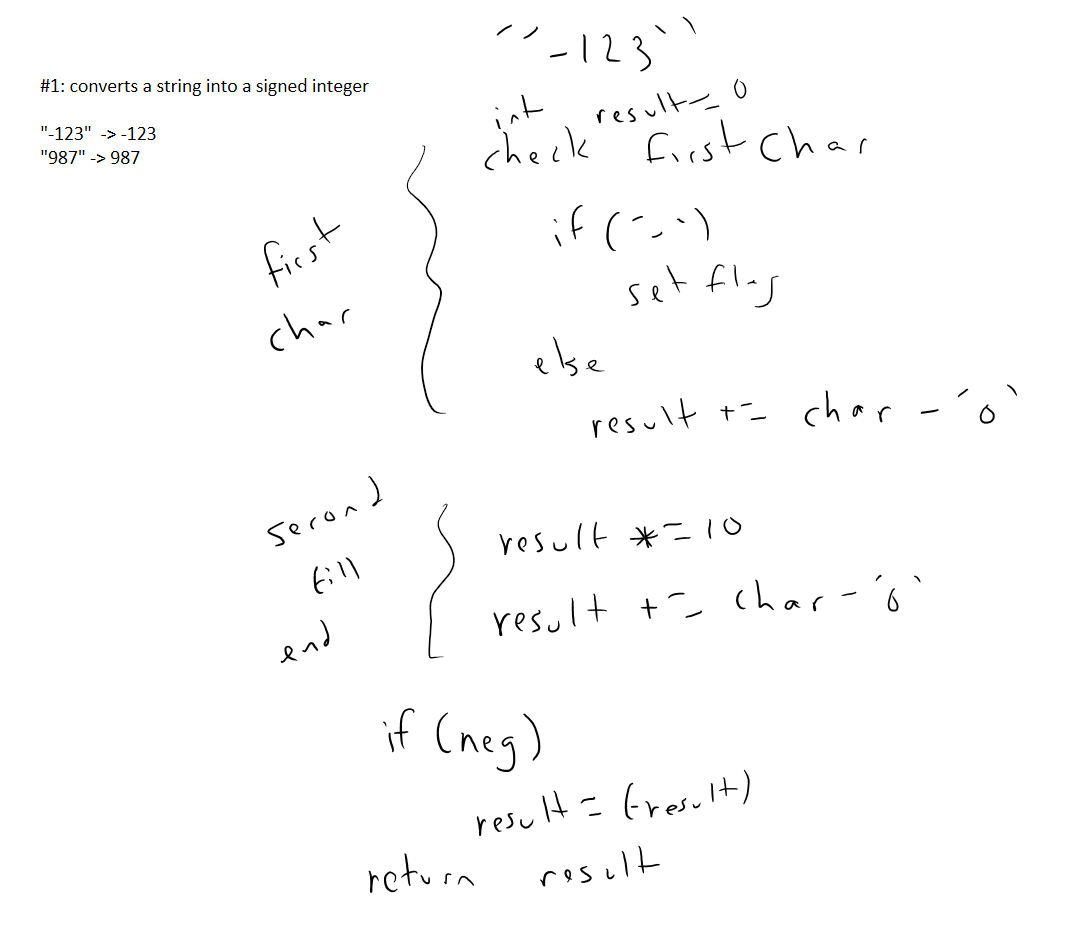 #1: converts a string into a signed integer
"-123" -> -123
"987" -> 987
"-123"
int result = 0
check first char
first
char
if (= -)
set flag
else
result += char - '0'
second
till
end
result *= 10
result += char - '0'
if (neg)
result = (-result)
return result